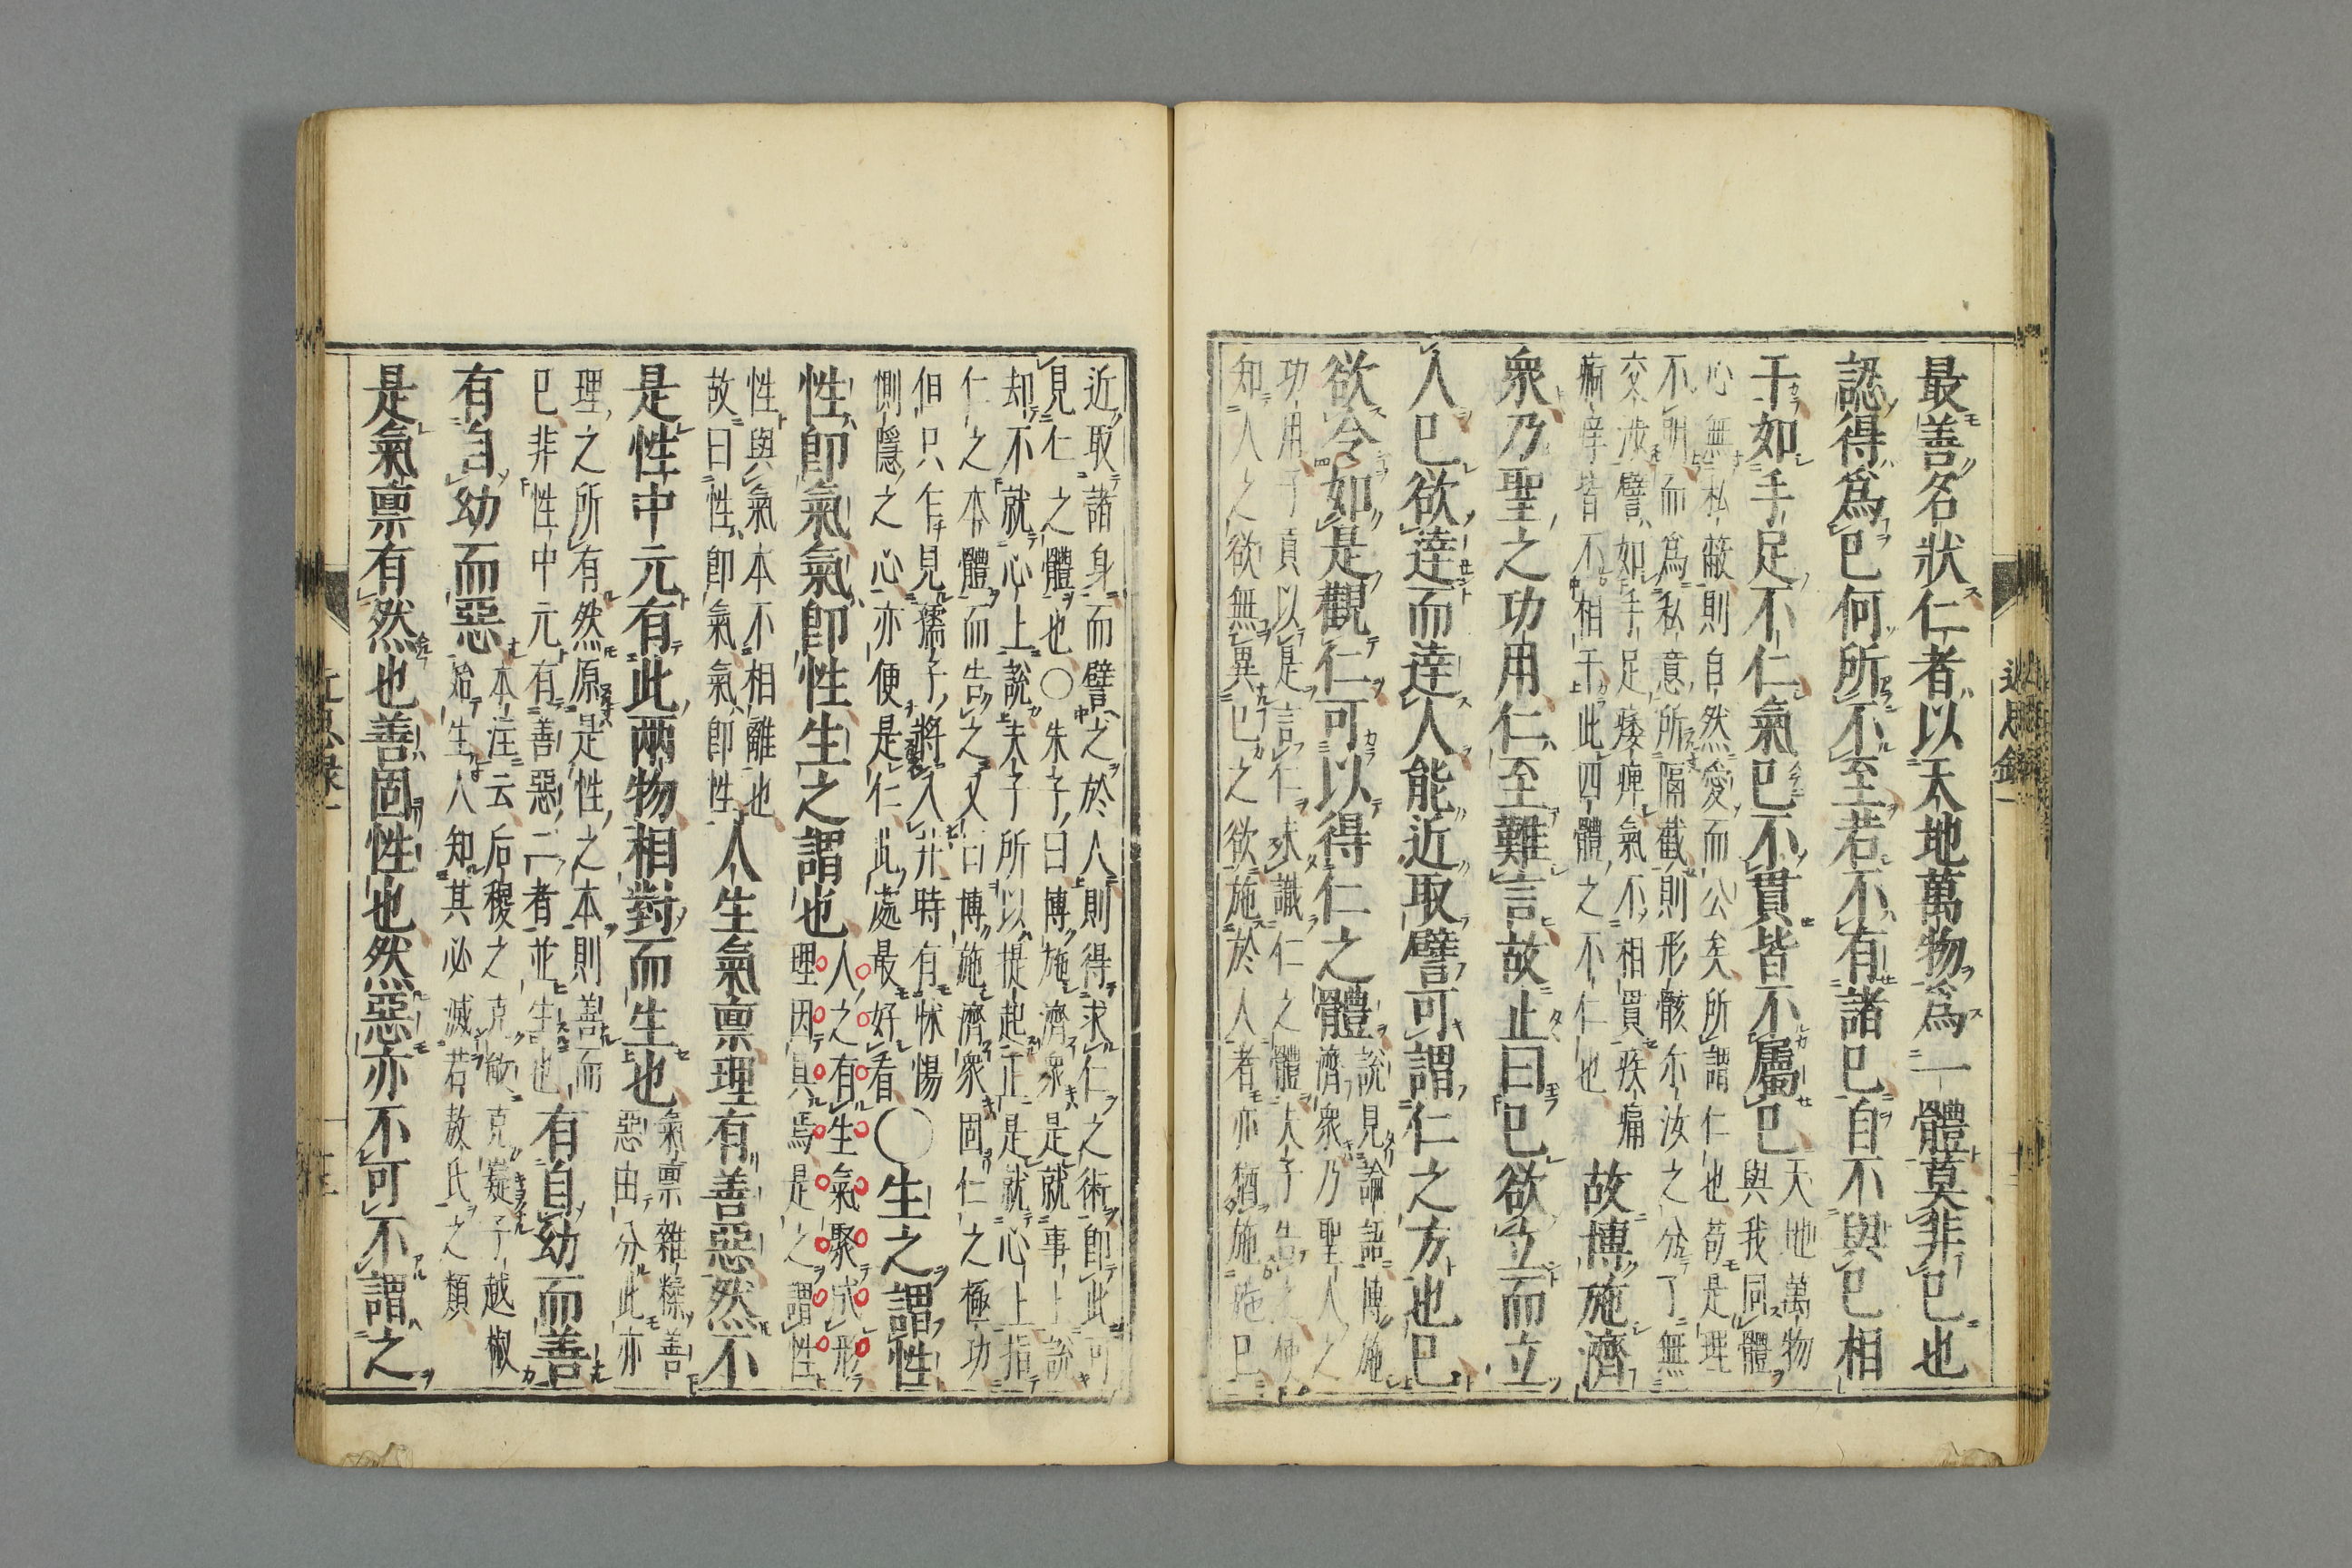 最善名狀仁者以天地萬物爲一體莫非已也
認得爲已何所不至若不有諸已自不與已相
干如手足不仁氣已不貫皆不屬已
天地萬物
與我同體
心無私蔽則自然愛而公矣所謂仁也苟是理
不明而爲私意所隔截則形骸尓汝之分了無
交渉譬如手足痿痺氣不相貫疾痛
痾痒皆不相干此四體之不仁也
故博施濟
衆乃聖之功用仁至難言故止曰已欲立而立
人已欲達而達人能近取譬可謂仁之方也已
欲令如是觀仁可以得仁之體
說見論語博施
濟衆乃聖人之
功用子貢以是言仁未識仁之體夫子告之使
知人之欲無異已之欲施於人者亦猶施於已
近取諸身而譬之於人則得求仁之術即此可
見仁之體也○朱子曰博施濟衆是就事上說
却不就心上說夫子所以提起正是就心上指
仁之本體而告之又曰博施濟衆固仁之極功
但只乍見孺子將入井時有怵惕
惻隱之心亦便是仁此處最好看
○生之謂性
性即氣氣即性生之謂也
人之有生氣聚成形
理因具焉是之謂性
性與氣本不相離也
故曰性即氣氣即性
人生氣禀理有善惡然不
是性中元有此兩物相對而生也
氣禀雜糅善
惡由分此亦
理之所有然原是性之本則善而
已非性中元有善惡二者並生也
有自幼而善
有自幼而惡
本注云后稷之克岐克嶷子越椒
始生人知其必滅若敖氏之類
是氣禀有然也善固性也然惡亦不可不謂之